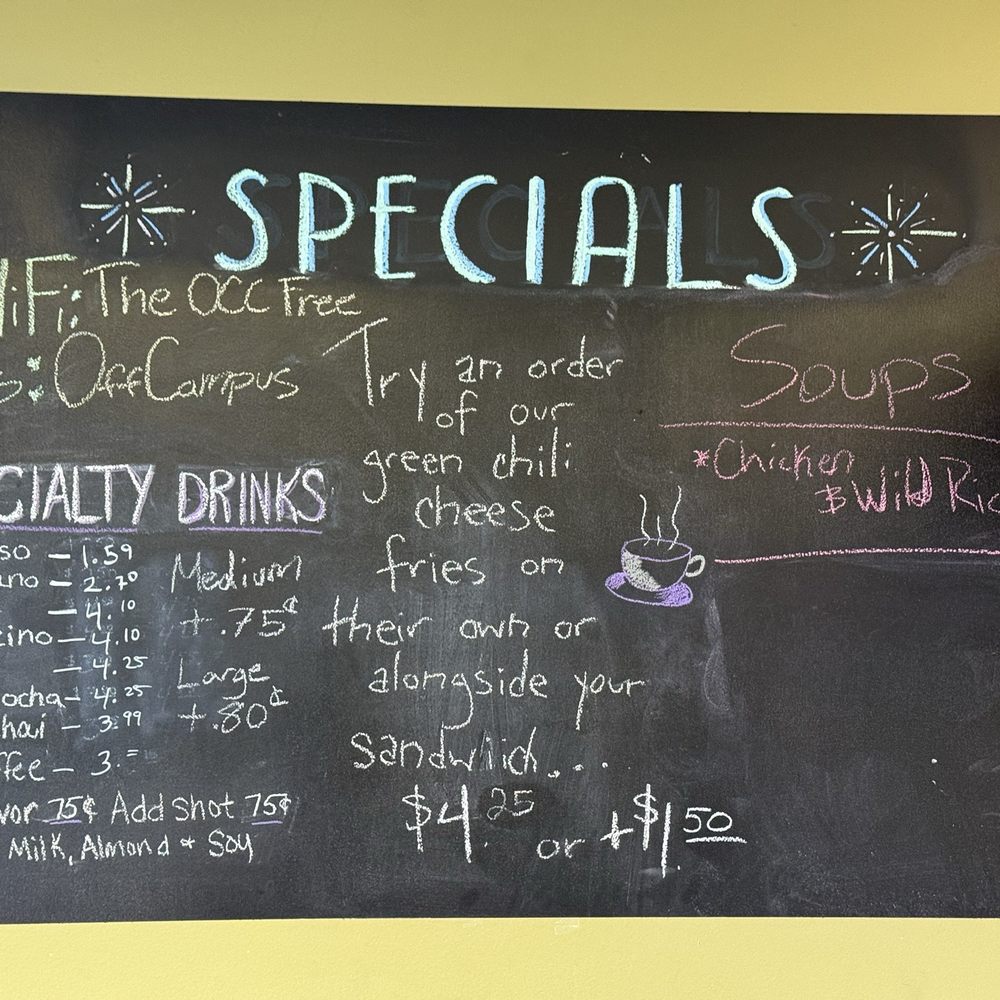 SPECIALS
iFi: The OCC Free
s: OffCampus
CIALTY DRINKS
so – 1.59
ino – 2.70
– 4.10
cino – 4.10
– 4.25
ocha – 4.25
hai – 3.99
ffee – 3.=
Medium
+.75¢
Large
+.80¢
vor 75¢ Add shot 75¢
Milk, Almond & Soy
Try an order
of our
green chili
cheese
fries on
their own or
alongside your
sandwhich...
$4.25 or +$1.50
Soups
*Chicken
& Wild Ric